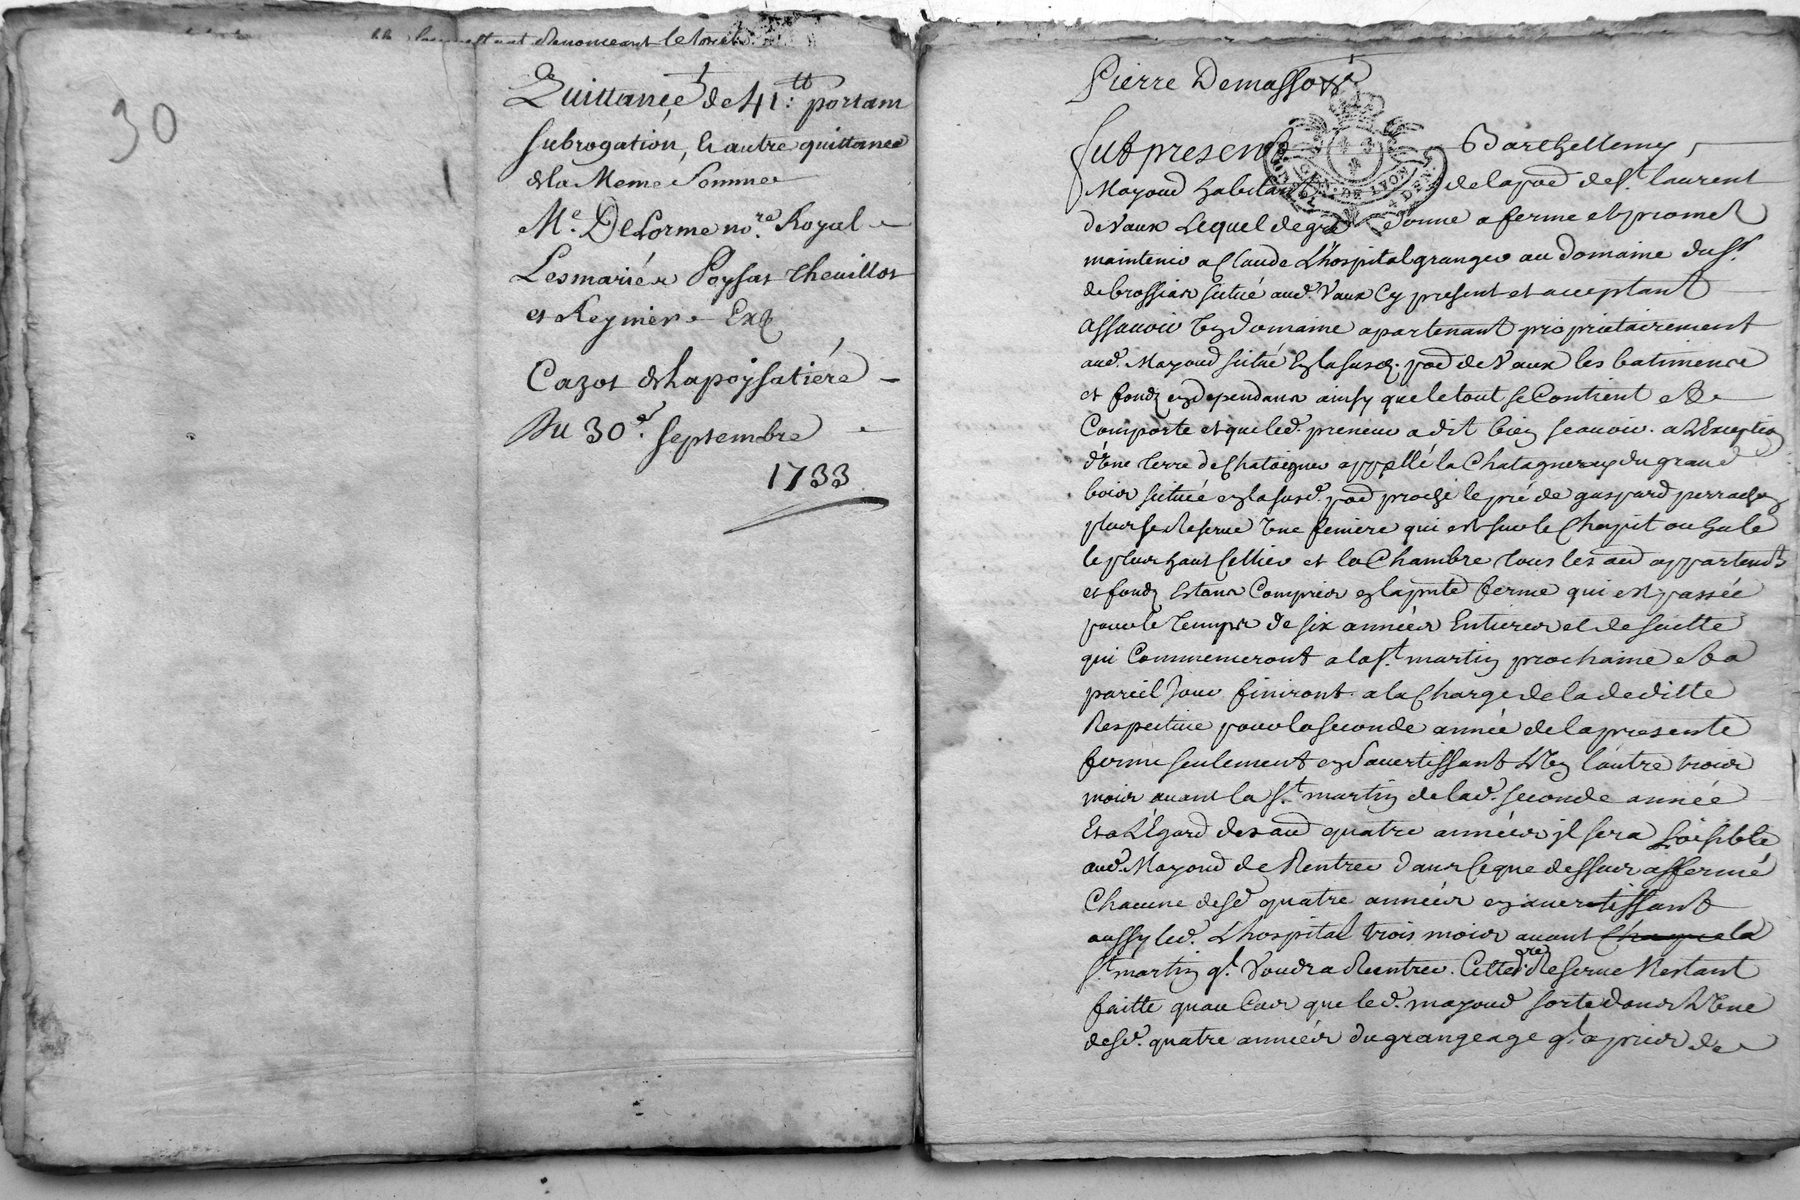 30
denonceant le
Quittance de 41 ₶: portant
subrogation, & autre quittance
de la Meme Somme
Me. DeLorme nore. Royal
Les mariés Poysat Theuillot
et Reynier Ex
Cazot de Lapoysatiére
Du 30e. septembre
1733
Pierre Demasso
Fut present Barthellemy
Mayoud habitant de la pard de St. laurent
de Vaux Lequel de gré donne a ferme et promet
maintenir a Claude L'hospital granger au domaine du Sr.
de brossias situé aud. Vaux Cy present et acceptant
Assavoir Un domaine apartenant proprietairement
aud. Mayoud situé En la susd. pard de Vaux les batimens
et fondz en dependans ainsy que le tout se Contient et Se
Comporte et que led. preneur a dit bien scavoir. a L'Exception
d'Une terre de Chataigner appellé la Chatagneraye du grand
bois située en la susd. pard proche le pré de gaspard perrachon
plus se Reserve Une feniere qui est sur le Chapit ou hale
le plus haut Cellier et la Chambre tous les aud appartents
et fondz Estans Compris en la pnte ferme qui est passée
pour le temps de six années Entieres et de suitte
qui Commenceront a la St. martin prochaine et a
pareil Jour finiront a la Charge de la deditte
Respective pour la seconde année de la presente
ferme seulement en s'avertissant L'Un l'autre trois
mois avant la St. martin de lad. seconde année
Et a L'Egard desaud quatre années jl sera Loisible
aud. Mayoud de Rentrer dans Ce que dessus affermé
Chacune desd quatre années en avertissant
aussy led. L'hospital trois mois avant Chaque la
St. martin ql. Voudra Rentrer. Cette dre Reserve N'estant
faitte qu'au Cas que led. mayoud sorte dans L'Une
desd. quatre années du grangeage ql. a pris de